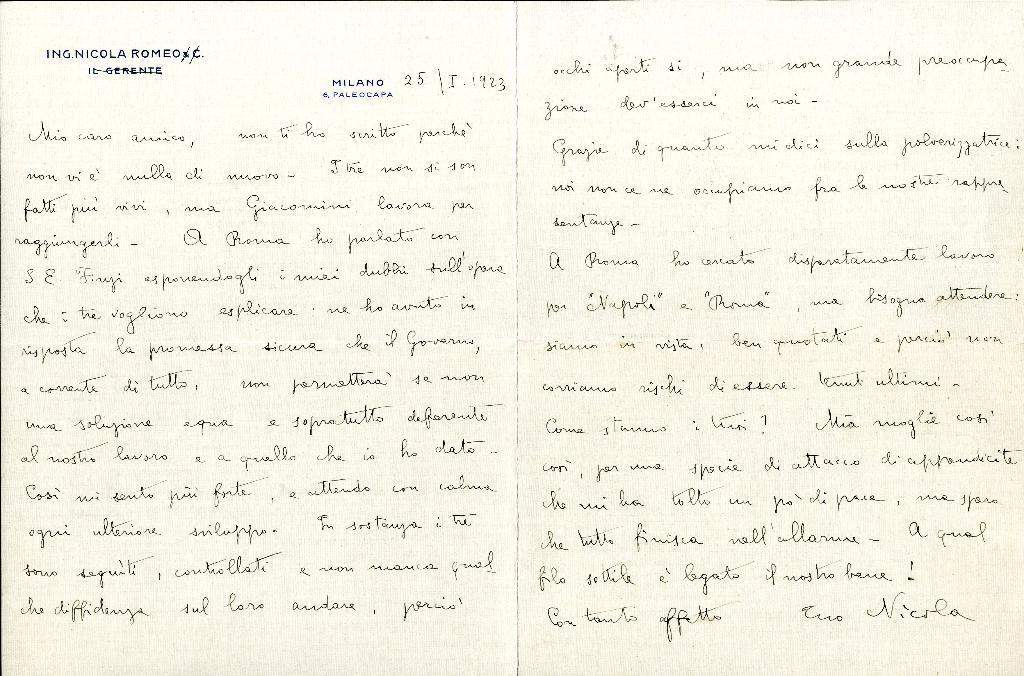 ING. NICOLA ROMEO & C.
IL GERENTE
MILANO 25/I.1923
6, PALEOCAPA
Mio caro amico, non ti ho scritto perchè
non vi è nulla di nuovo - I tre non si son
fatti più vivi, ma Giacomini lavora per
raggiungerli - A Roma ho parlato con
S E Finzi esponendogli i miei dubbi sull'opera
che i tre vogliono esplicare: ne ho avuto in
risposta la promessa sicura che il Governo,
a corrente di tutto, non permetterà se non
una soluzione equa e sopratutto deferente
al nostro lavoro e a quello che io ho dato -
Così mi sento più forte, e attendo con calma
ogni ulteriore sviluppo. In sostanza i tre
sono seguiti, controllati e non manca qual
che diffidenza sul loro andare, perciò
occhi aperti si, ma non grande preoccupa
zione dev'esserci in noi -
Grazie di quanto mi dici sulla polverizzatrice:
noi non ce ne occupiamo fra le nostre rappre
sentanze -
A Roma ho cercato disperatamente lavoro
per "Napoli" e "Roma", ma bisogna attendere:
siamo in vista, ben quotati e perciò non
corriamo rischi di essere tenuti ultimi -
Come stanno i tuoi? Mia moglie così
così, per una specie di attacco di appendicite
che mi ha tolto un pò di pace, ma spero
che tutto finisca nell'allarme - A qual
filo sottile è legato il nostro bene!
Con tanto affetto Tuo Nicola